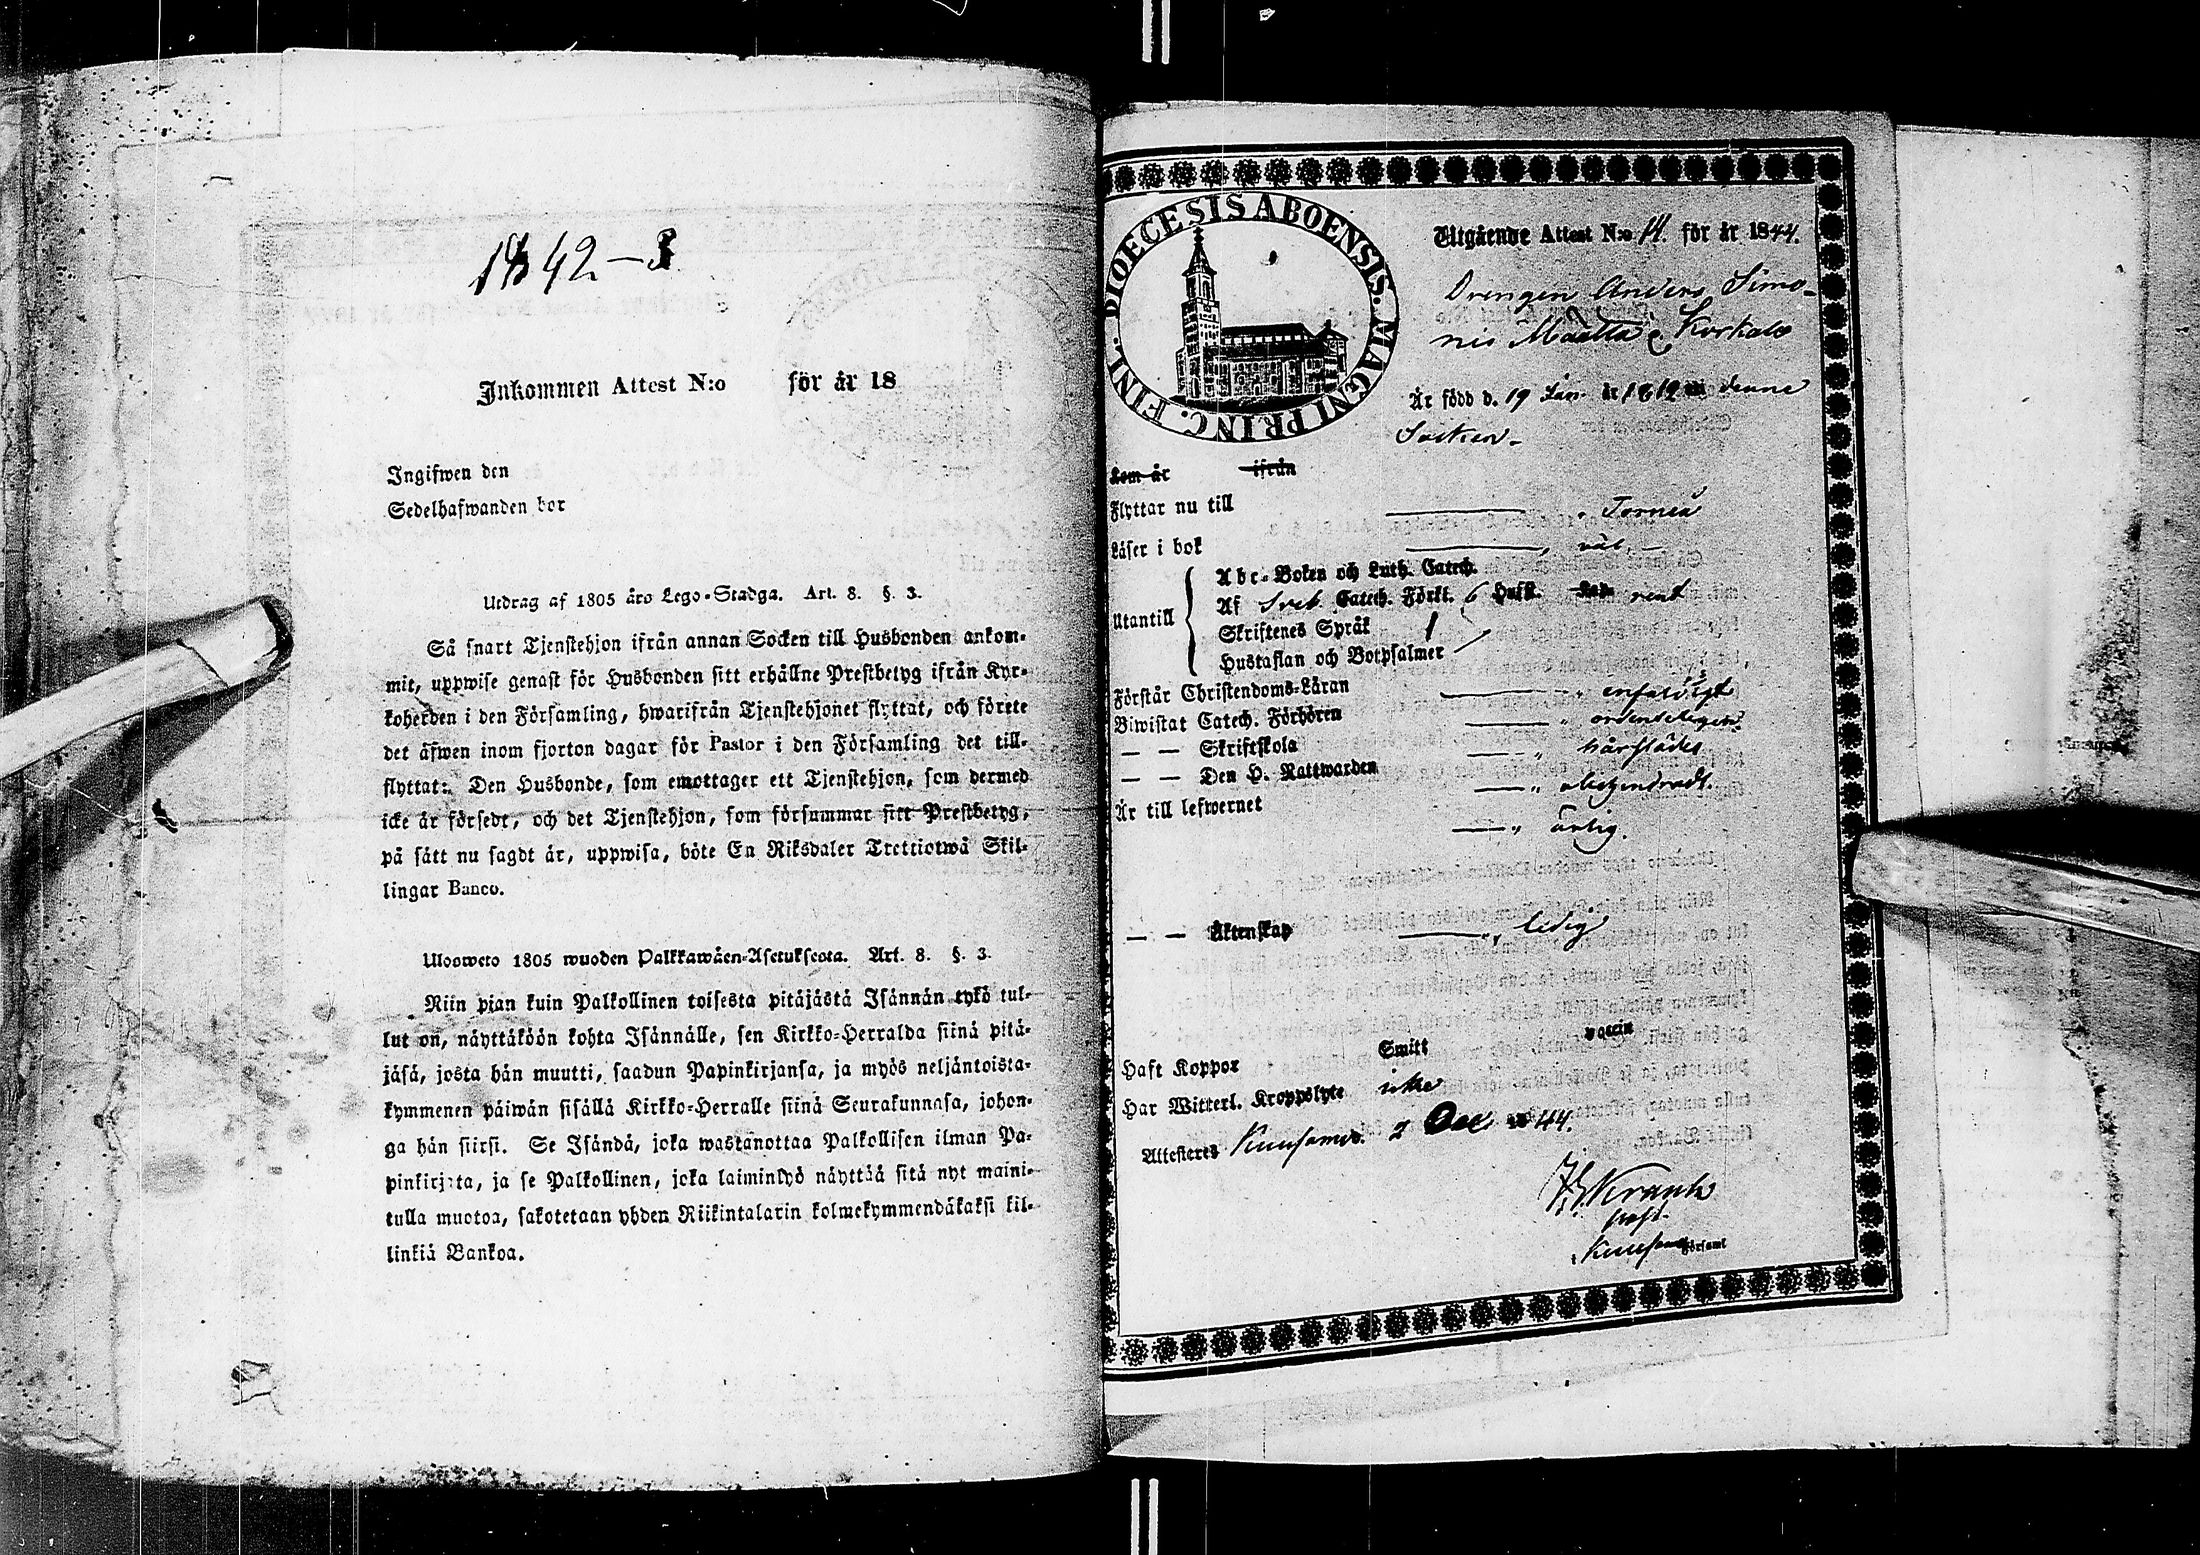 1842-3
Inkommen Attest N:o för år 18
Ingifwen den
Sedelhafwanden bor
Utdrag af 1805 års Lego-Stadga. Art. 8. §. 3.
Så snart Tjenstehjon ifrån annan Socken till Husbonden ankom-
mit, uppwise genast för Husbonden sitt erhållne Prestbetyg ifrån Kyr-
koherden i den Församling, hwarifrån Tjenstehjonet flyttat, och förete
det äfwen inom fjorton dagar för Pastor i den Församling det till-
flyttat: Den Husbonde, som emottager ett Tjenstehjon, som dermed
icke är försedt, och det Tjenstehjon, som försummar sitt Prestbetyg,
på sätt nu sagdt är, uppwisa, böte En Riksdaler Trettiotwå Skil-
lingar Banco.
Uloosweto 1805 wuoden Palkkawäen-Asetuksesta. Art. 8. §. 3.
Niin pian kuin Palkollinen toisesta pitäjästä Isännän tykö tul-
lut on, näyttäköön kohta Isännälle, sen Kirkko-Herralda siinä pitä-
jäsä, josta hän muutti, saadun Papinkirjansa, ja myös neljäntoista-
kymmenen päiwän sisällä Kirkko-Herralle siinä Seurakunnasa, johon-
ga hän siirsi. Se Isändä, joka wastanottaa Palkollisen ilman Pa-
pinkirjata, ja se Palkollinen, joka laiminlyö näyttää sitä nyt maini-
tulla muotoa, sakotetaan yhden Riikintalarin kolmekymmendäkaksi kil-
linkiä Bankoa.
DIOECESIS ABOENSIS. MAGNI PRINC. FINL.
Utgående Attest N:o 14. för år 1844.
Drengen Anders Simo-
nis Määttä Korkalo
Är född d. 19 Jan. år 1812 i denne
Socken
Kom år ifrån
Flyttar nu till " Torneå
Läser i bok " väl
Utantill
Abc-Boken och Luth. Catech.
Af Sveb. Catech. Förkl. 6 Hufst. Kap rent
Skriftenes Språk
Hustaflan och Botpsalmer
Förstår Christendoms-Läran " enfaldigt
Biwistat Catech. Förhören " ordenteligen
— — Skriftskola " härstädes
— — Den H. Nattwarden " obehindradt.
Är till lefwernet " ärlig.
— — Äktenskap " ledig
Haft Koppor Smitt vaccin
Har Witterl. Kroppslyte icke
Attesteres Kuusamo. 2 Dec 1844.
Past.
Kuusamo Församl